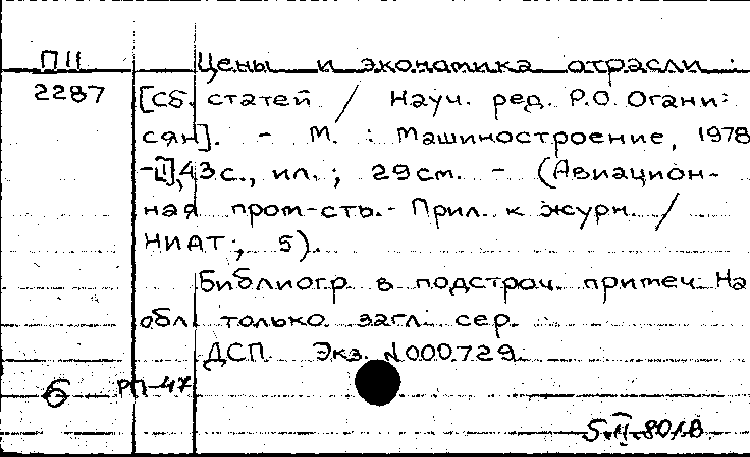 П11 Цены и экономика отрасли :
2287 [Сб. статей / Науч. ред. Р.О. Огани-
сян]. - М. : Машиностроение, 1978
-[1],43с., ил.; 29см. - (Авиацион-
ная пром-сть.- Прил. к журн. /
НИАТ; 5).
Библиогр. в подстроч. примеч. На
обл. только загл. сер.
ДСП Экз. N000729
6 РП-47